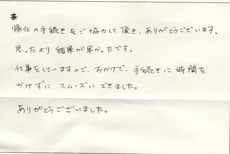 帰化の手続きをご協力して頂き、ありがとうございます。
思ったより結果が早かったです。
仕事をしていますので、おかげで、手続きに時間を
かけずに、スムーズにできました。
ありがとうございました。